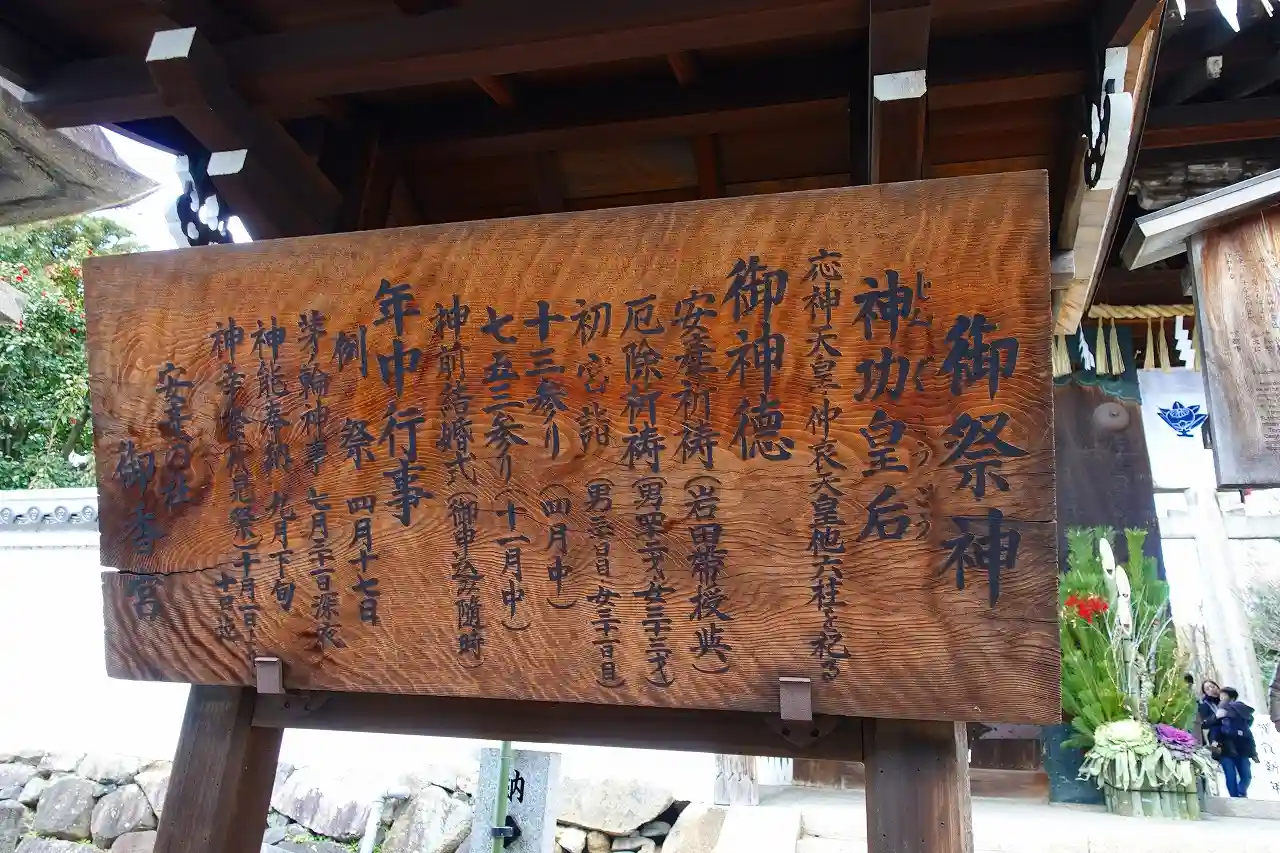 御祭神
神功皇后
じんぐうこうごう
応神天皇・仲哀天皇他六柱を祀る
御神徳
安産祈祷(岩田帯授与)
厄除祈祷(男四十二才女三十三才)
初宮詣(男三十日目女三十一日目)
十三参り(四月中)
七五三参り(十一月中)
神前結婚式(御申込次第随時)
年中行事
例祭 四月十七日
茅ノ輪神事 七月三十一日深夜
神能奉納 九月下旬
神幸祭(伏見祭)十月一日
十日迄
安産の社
御香宮
納